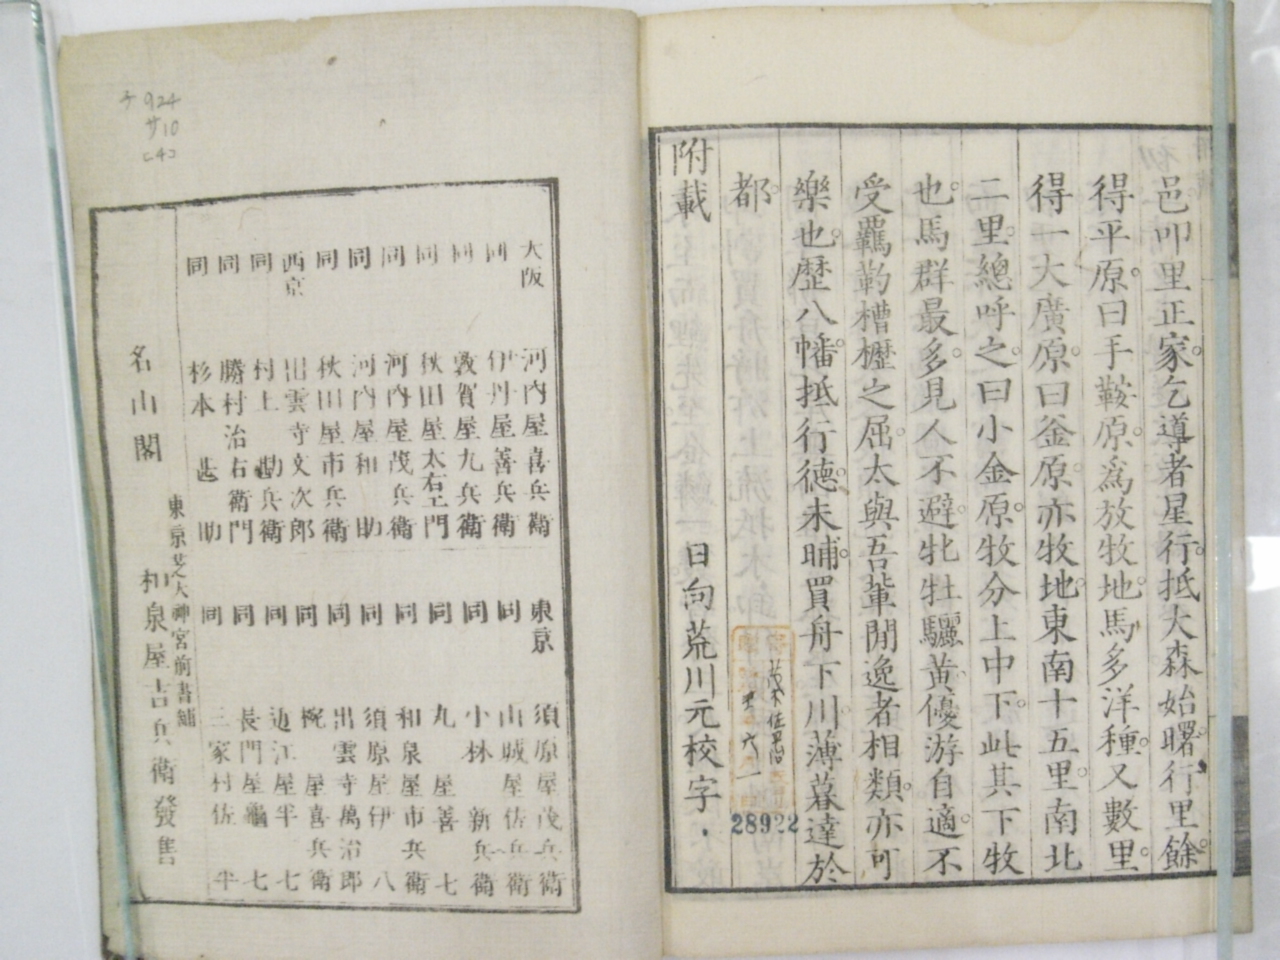 邑叩里正家。乞導者星行。抵大森始曙。行里餘。
得平原。曰手鞍原。爲放牧地。馬多洋種。又數里。
得一大廣原。曰釜原。亦牧地。東南十五里。南北
二里。總呼之。曰小金原。牧分上中下。此其下牧
也。馬群最多。見人不避。牝牡驪黃。優游自適。不
受羈靮槽櫪之屈。太與吾輩閒逸者相類。亦可
樂也。歷八幡。抵行德。未晡。買舟下川。薄暮達於
都。
附載 日向荒川元校字
28922
チ924
サ10
(4)
大阪 河内屋喜兵衛
同 伊丹屋善兵衛
同 敦賀屋九兵衛
同 秋田屋太右エ門
同 河内屋茂兵衛
同 河内屋和助
同 秋田屋市兵衛
西京 出雲寺文次郎
同 村上勘兵衛
同 勝村治右衛門
同 杉本甚助
東京 須原屋茂兵衛
同 山城屋佐兵衛
同 小林新兵衛
同 丸屋善七
同 和泉屋市兵衛
同 須原屋伊八
同 出雲寺萬治郎
同 椀屋喜兵衛
同 近江屋半七
同 長門屋龜七
同 三家村佐平
東京芝大神宮前書舖
名山閣 和泉屋吉兵衛發售